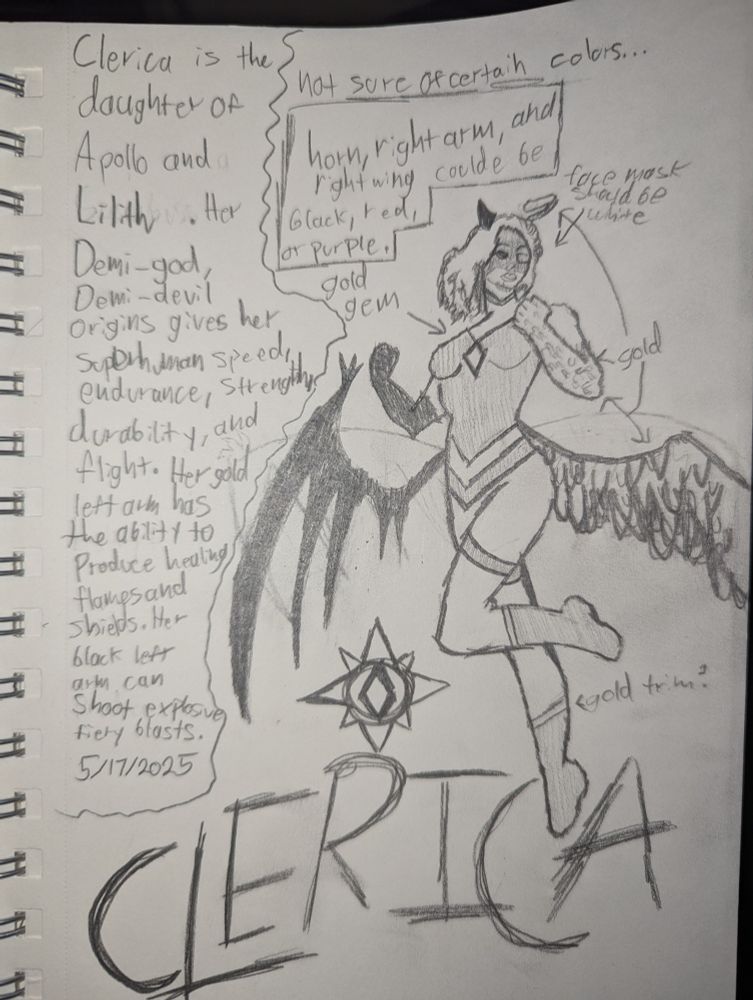 Clerica is the
daughter of
Apollo and
Lilith . Her
Demi-god,
Demi-devil
origins gives her
superhuman speed,
endurance, strength,
durability, and
flight. Her gold
left arm has
the ability to
Produce healing
flames and
shields. Her
black left
arm can
Shoot explosive
fiery blasts.
5/17/2025
not sure of certain colors...
horn, right arm, and
right wing
coulde be
black, red,
or purple.
face mask
should be
white
gold
gem
gold
gold trim?
CLERICA